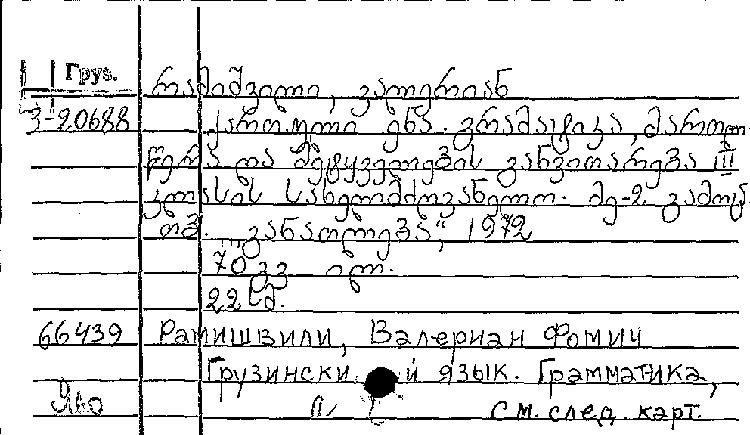 Груз. რამიშვილი, ვალერიან
3-20688 ქართული ენა. გრამატიკა, მართლ-
წერა და მეტყველების განვითარება III
კლასის სახელმძღვანელო. მე-2 გამოც.
თბ. „განათლება“, 1972
70 გვ. ილ.
22 სმ.
66439 Рамишвили, Валериан Фомич
Грузински й язык. Грамматика,
см. след. карт.